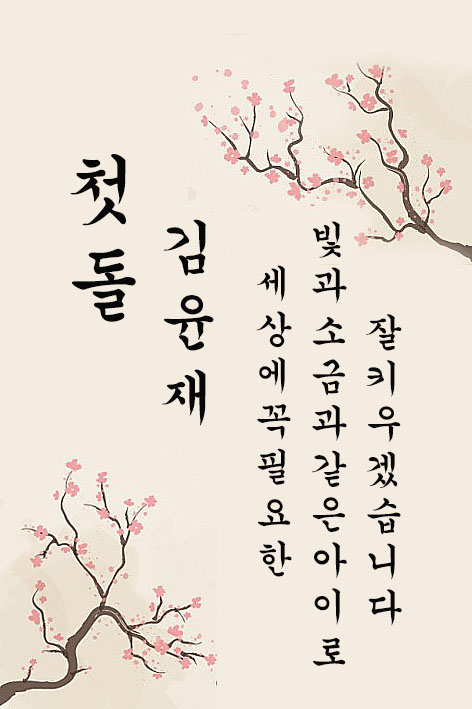 첫돌
김윤재
세상에꼭필요한
빛과소금과같은아이로
잘키우겠습니다